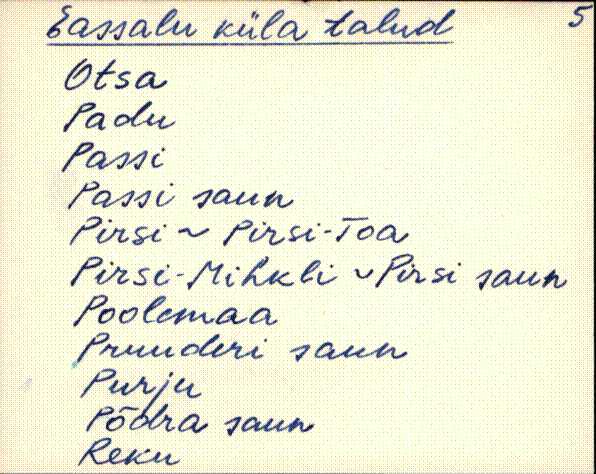 Eassalu küla talud 5
Otsa
Padu
Passi
Passi saun
Pirsi ~ Pirsi-Toa
Pirsi-Mihkli ~ Pirsi saun
Poolemaa
Pruuderi saun
Purju
Põdra saun
Reku